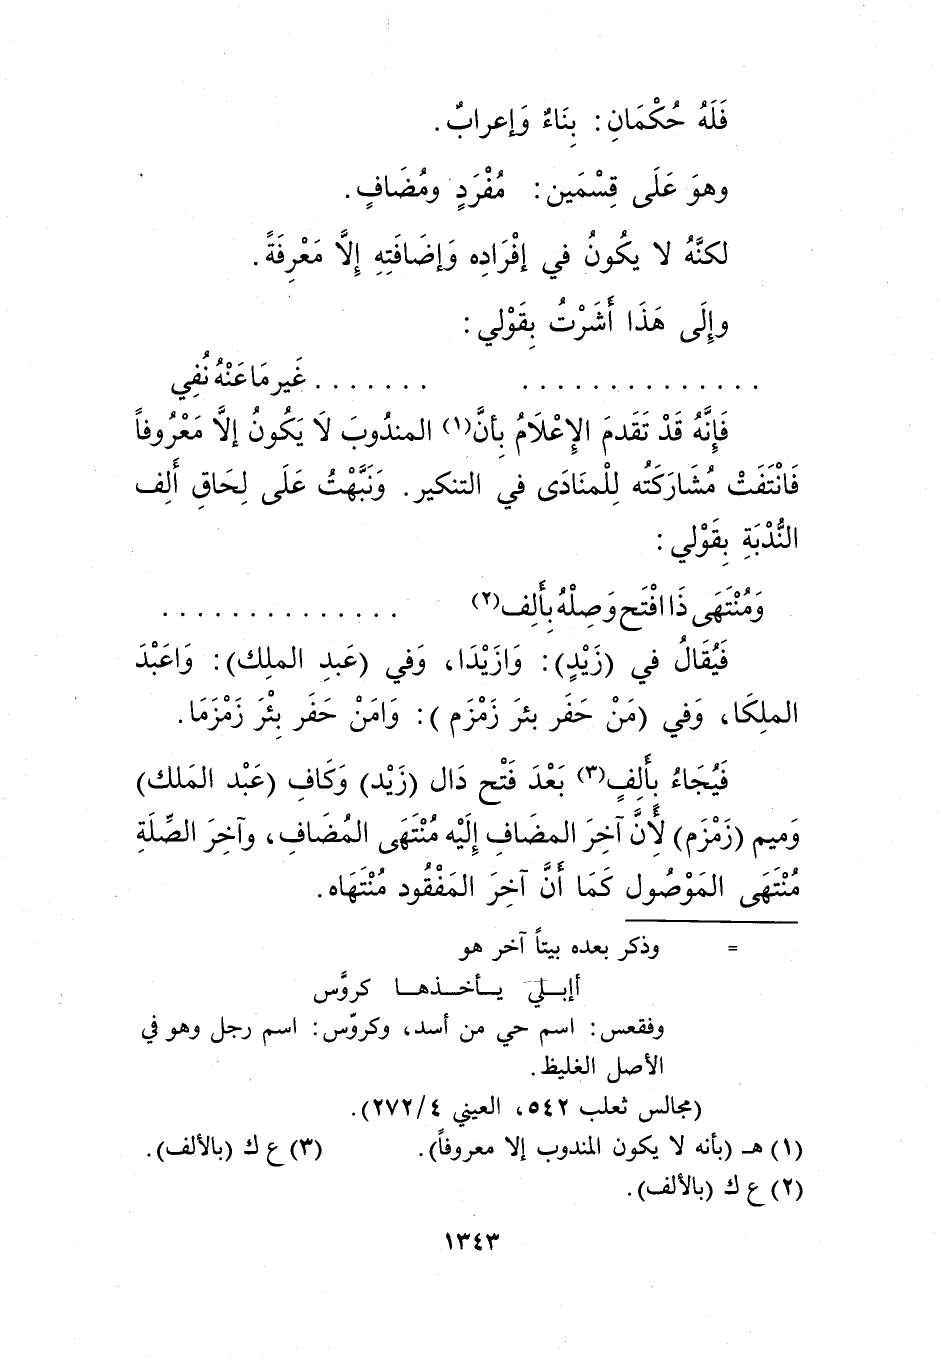 فَلَهُ حُكْمَانِ: بِنَاءٌ وَإعرابٌ.
وهوَ عَلَى قِسْمَين: مُفْرَدٍ ومُضَافٍ.
لكنَّهُ لا يكُونُ في إفْرَادِه وَإضَافَتِهِ إلَّا مَعْرِفَةً.
وإلَى هَذَا أَشَرْتُ بِقَوْلي:
. . . . . . . . . . . . . . . . . . . . . غَير مَا عَنْهُ نُفِي
فَإنَّهُ قَدْ تَقَدمَ الإعْلَامُ بِأنَّ(١) المندُوبَ لَا يَكُونُ إلَّا مَعْرُوفاً
فَانْتَفَتْ مُشَارَكَتُه لِلْمنَادَى في التنكير. وَنَبَّهْتُ عَلَى لِحَاقِ أَلِف
النُّدْبَةِ بِقَوْلي:
وَمُنْتَهَى ذَا افْتَح وَصِلْهُ بِأَلِف(٢) . . . . . . . . . . . . . .
فَيُقَالُ في (زَيْدٍ): وَازَيْدَا، وَفي (عَبدِ الملِك): وَاعَبْدَ
الملِكَا، وَفي (مَنْ حَفَر بئرَ زَمْزَم): وَامَنْ حَفَر بِئْرَ زَمْزَمَا.
فَيُجَاءُ بِأَلِفٍ(٣) بَعْدَ فَتْح دَال (زَيْد) وَكَافِ (عَبْد المَلك)
وَميم (زَمْزَم) لِأَنَّ آخِرَ المضَافِ إلَيْه مُنْتَهَى المُضَافِ، وآخِرَ الصِّلَةِ
مُنْتَهَى المَوْصُول كَمَا أَنَّ آخِرَ المَفْقُود مُنْتَهَاه.
= وذكر بعده بيتاً آخر هو
أإبلي يأخذها كروَّس
وفقعس: اسم حي من أسد، وكروّس: اسم رجل وهو في
الأصل الغليظ.
(مجالس ثعلب ٥٤٢، العيني ٢٧٢/٤).
(١) هـ (بأنه لا يكون المندوب إلا معروفاً). (٣) ع ك (بالألف).
(٢) ع ك (بالألف).
١٣٤٣